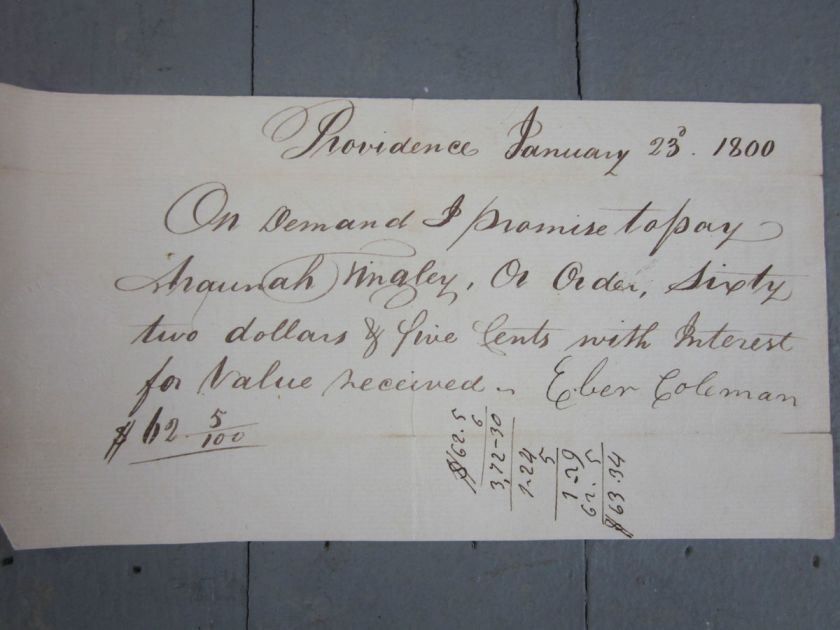 Providence January 23ᵈ. 1800
On Demand I promise to pay
Kingley, Or Order, Sixty
two dollars & five Cents with Interest
for Value received – Eber Coleman
$62. 5/100
$62.5
6
3,72-30
1-24
5
1-29
62.5
$63.34